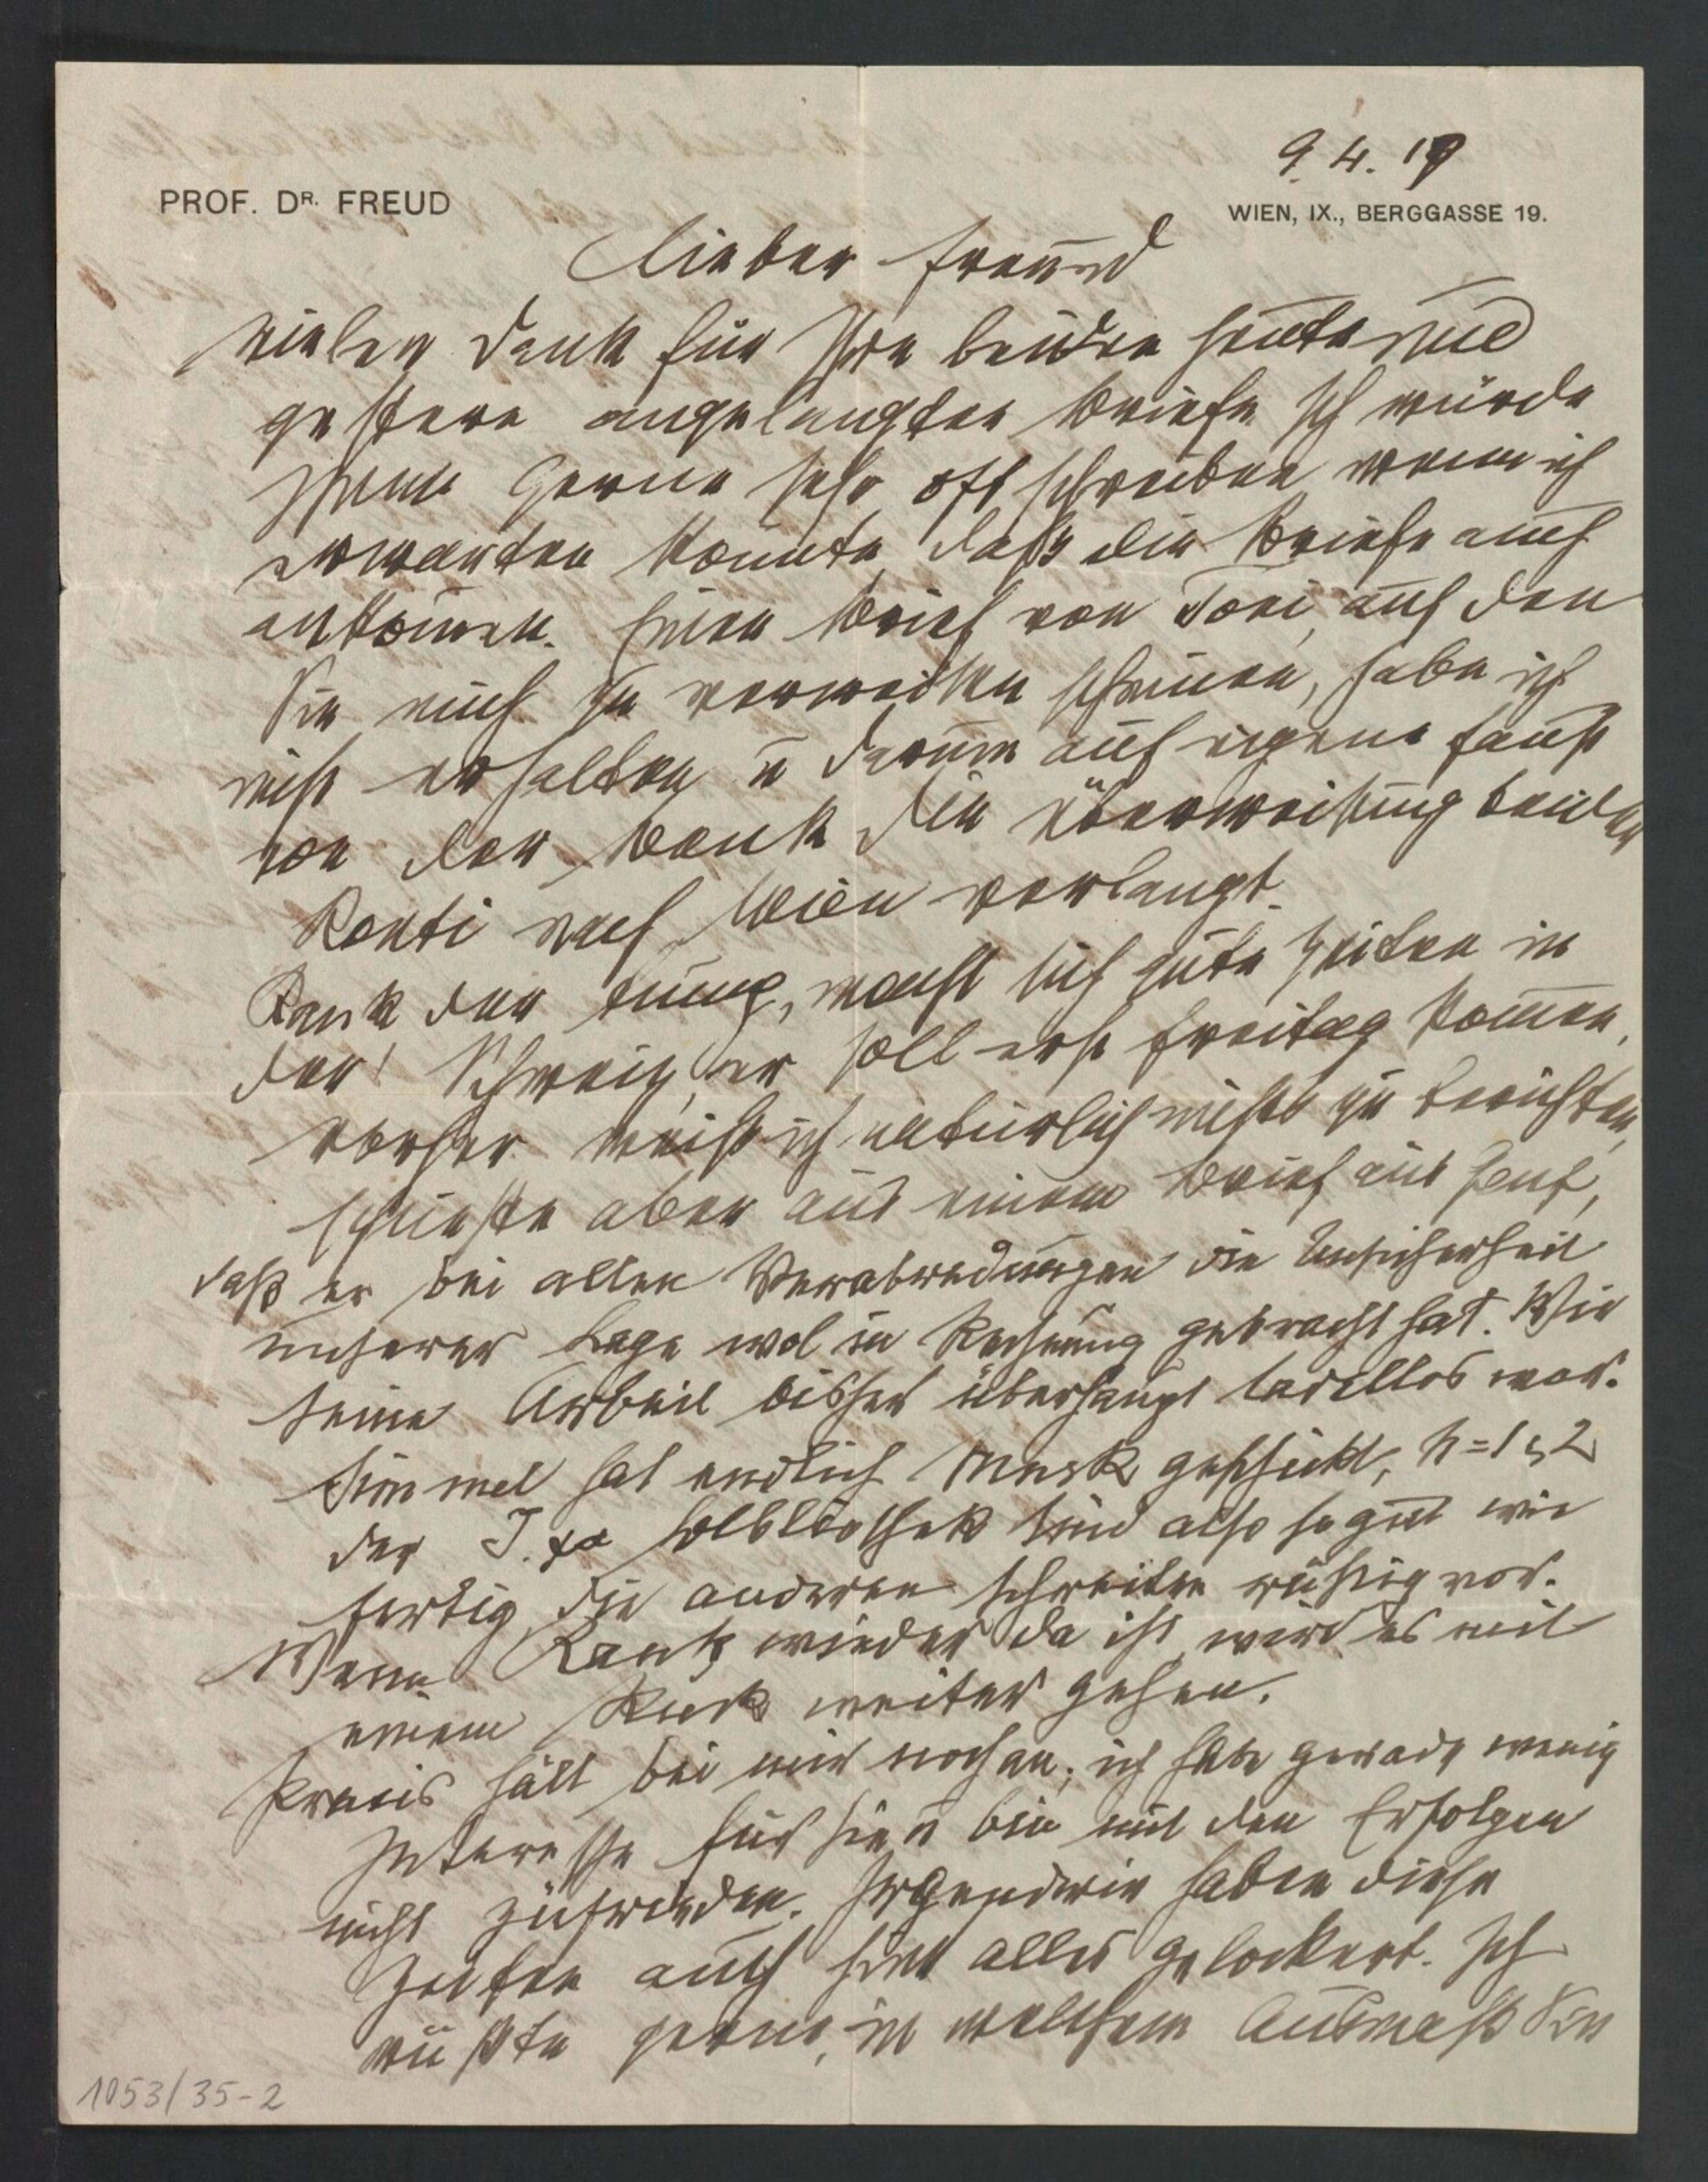 9. 4. 19
PROF. DR. FREUD
WIEN, IX., BERGGASSE 19.
Lieber Freund
Vielen Dank für Ihre beiden heute und
gestern angelangten Briefe Ich würde
Ihnen gerne sehr oft schreiben wenn ich
erwarten könnte, daß die Briefe auch
ankom̄en. Einen Brief von Toni, auf den
Sie mich zu verweisen scheinen, habe ich
nicht erhalten u darum auf eigene Faust
von der Bank die Überweisung beider
Konti nach Wien verlangt.
Rank der macht sich gute Zeiten in
der Schweiz, er soll erst Freitag kom̄en,
vorher weiß ich natürlich nichts zu berichten,
schließe aber aus einem Brief aus Genf,
daß er bei allen Verabredungen die Unsicherheit
unserer Lage wol in Rechnung gebracht hat. Wie
seine Arbeit bisher überhaupt tadellos war.
Simmel hat endlich Mnskr geschickt, N = 1 u 2
der I. ψα Bibliothek sind also so gut wie
fertig, die anderen schreiten rüstig vor.
Wenn Rank wieder da ist, wird es mit
einem Ruck weiter gehen.
Praxis hält bei mir noch an; ich habe gerade wenig
Interesse für sie u bin mit den Erfolgen
nicht zufrieden. Irgendwie haben diese
Zeiten auch hier alles gelockert. Ich
wüßte gerne, in welchem Ausmaß Sie
1053/35-2